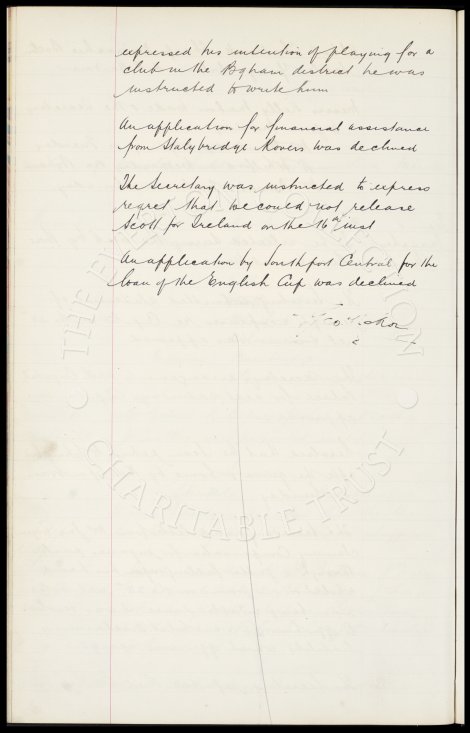 expressed his intention of playing for a
club in the Bgham district he was
instructed to write him
An application for financial assistance
from Stalybridge Rovers was declined
The Secretary was instructed to express
regret that we could not release
Scott for Ireland on the 16th inst
An application by Southport Central for the
loan of the English Cup was declined
THE EVERTON COLLECTION
CHARITABLE TRUST